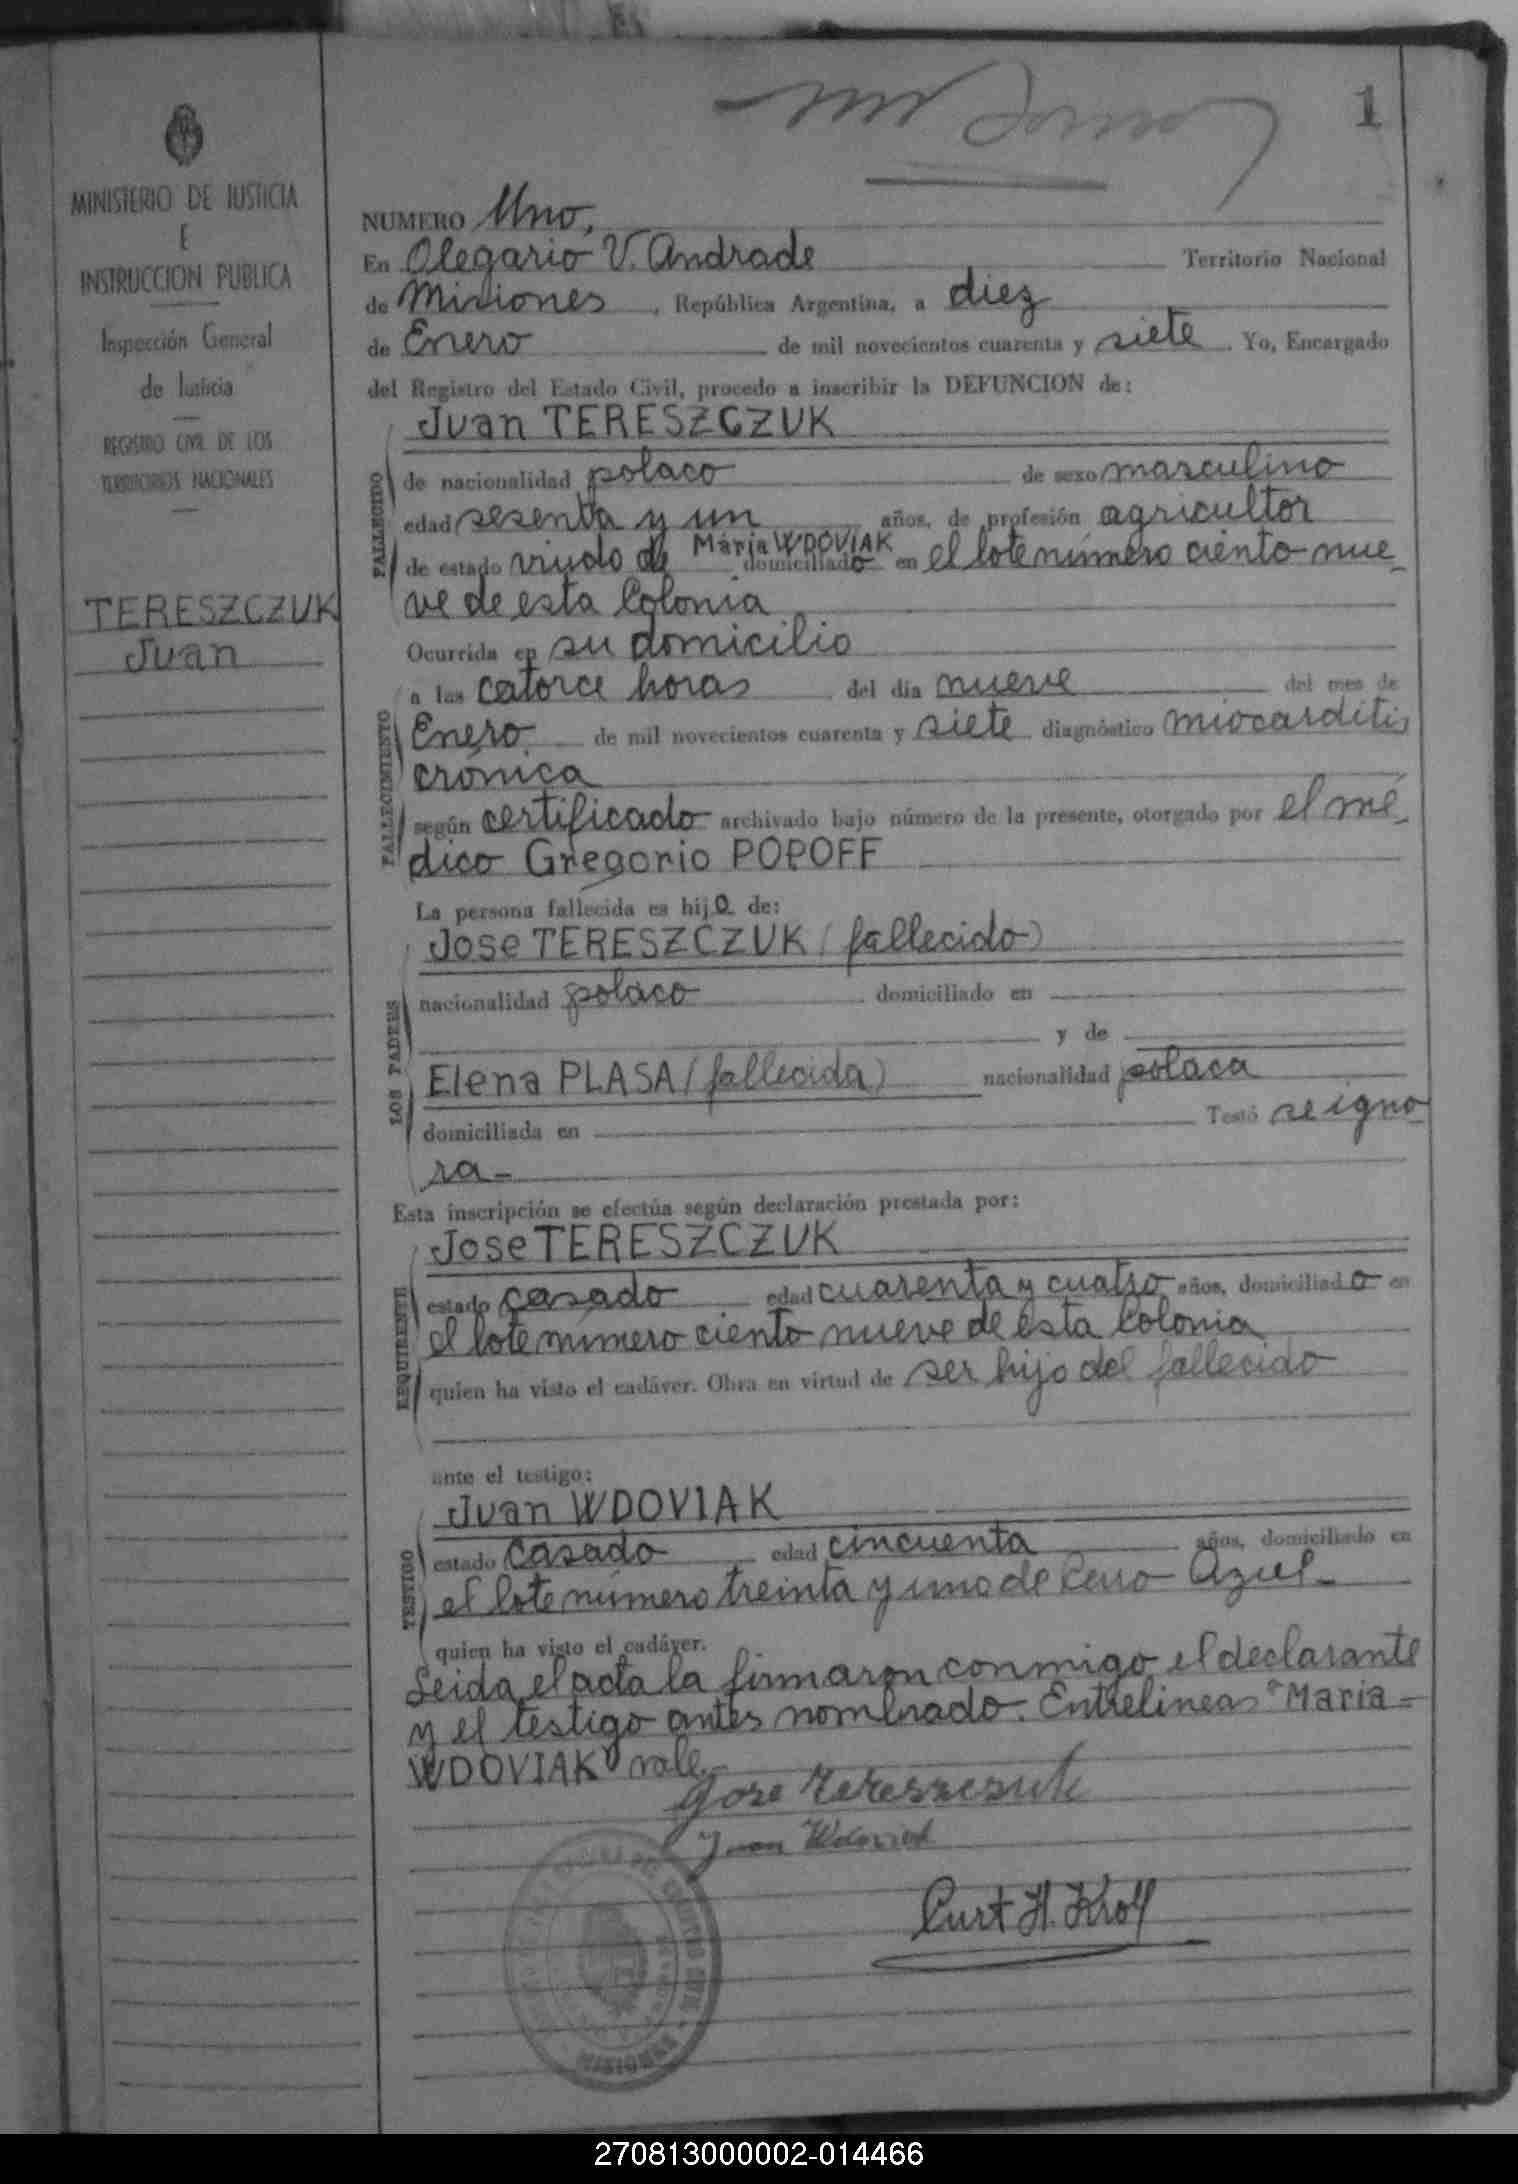 1
MINISTERIO DE JUSTICIA
E
INSTRUCCION PUBLICA
Inspección General
de Justicia
REGISTRO CIVIL DE LOS
TERRITORIOS NACIONALES
TERESZCZUK
Juan
NUMERO Uno,
En Olegario V. Andrade Territorio Nacional
de Misiones, República Argentina, a diez
de Enero de mil novecientos cuarenta y siete. Yo, Encargado
del Registro del Estado Civil, procedo a inscribir la DEFUNCION de:
Juan TERESZCZUK
FALLECIDO
de nacionalidad polaco de sexo masculino
edad sesenta y un años, de profesión agricultor
de estado viudo de Maria WDOVIAK domiciliado en el lote número ciento nue-
ve de esta Colonia
Ocurrida en su domicilio
FALLECIMIENTO
a las catorce horas del día nueve del mes de
Enero de mil novecientos cuarenta y siete diagnóstico miocarditis
crónica
según certificado archivado bajo número de la presente, otorgado por el mé-
dico Gregorio POPOFF
La persona fallecida es hijo de:
LOS PADRES
Jose TERESZCZUK (fallecido)
nacionalidad polaco domiciliado en
y de
Elena PLASA (fallecida) nacionalidad polaca
domiciliada en Testó se igno
ra-
Esta inscripción se efectúa según declaración prestada por:
REQUIRENTE
Jose TERESZCZUK
estado casado edad cuarenta y cuatro años, domiciliado en
el lote número ciento nueve de esta Colonia
quien ha visto el cadáver. Obra en virtud de ser hijo del fallecido
ante el testigo:
TESTIGO
Juan WDOVIAK
estado casado edad cincuenta años, domiciliado en
el lote número treinta y uno de Cerro Azul-
quien ha visto el cadáver.
Leida el acta la firmaron conmigo el declarante
y el testigo antes nombrado. Entrelineas "Maria-
WDOVIAK" vale.-
Jose Tereszczuk
Juan Wdoviak
Curt H. Kroll
MISIONES
270813000002-014466